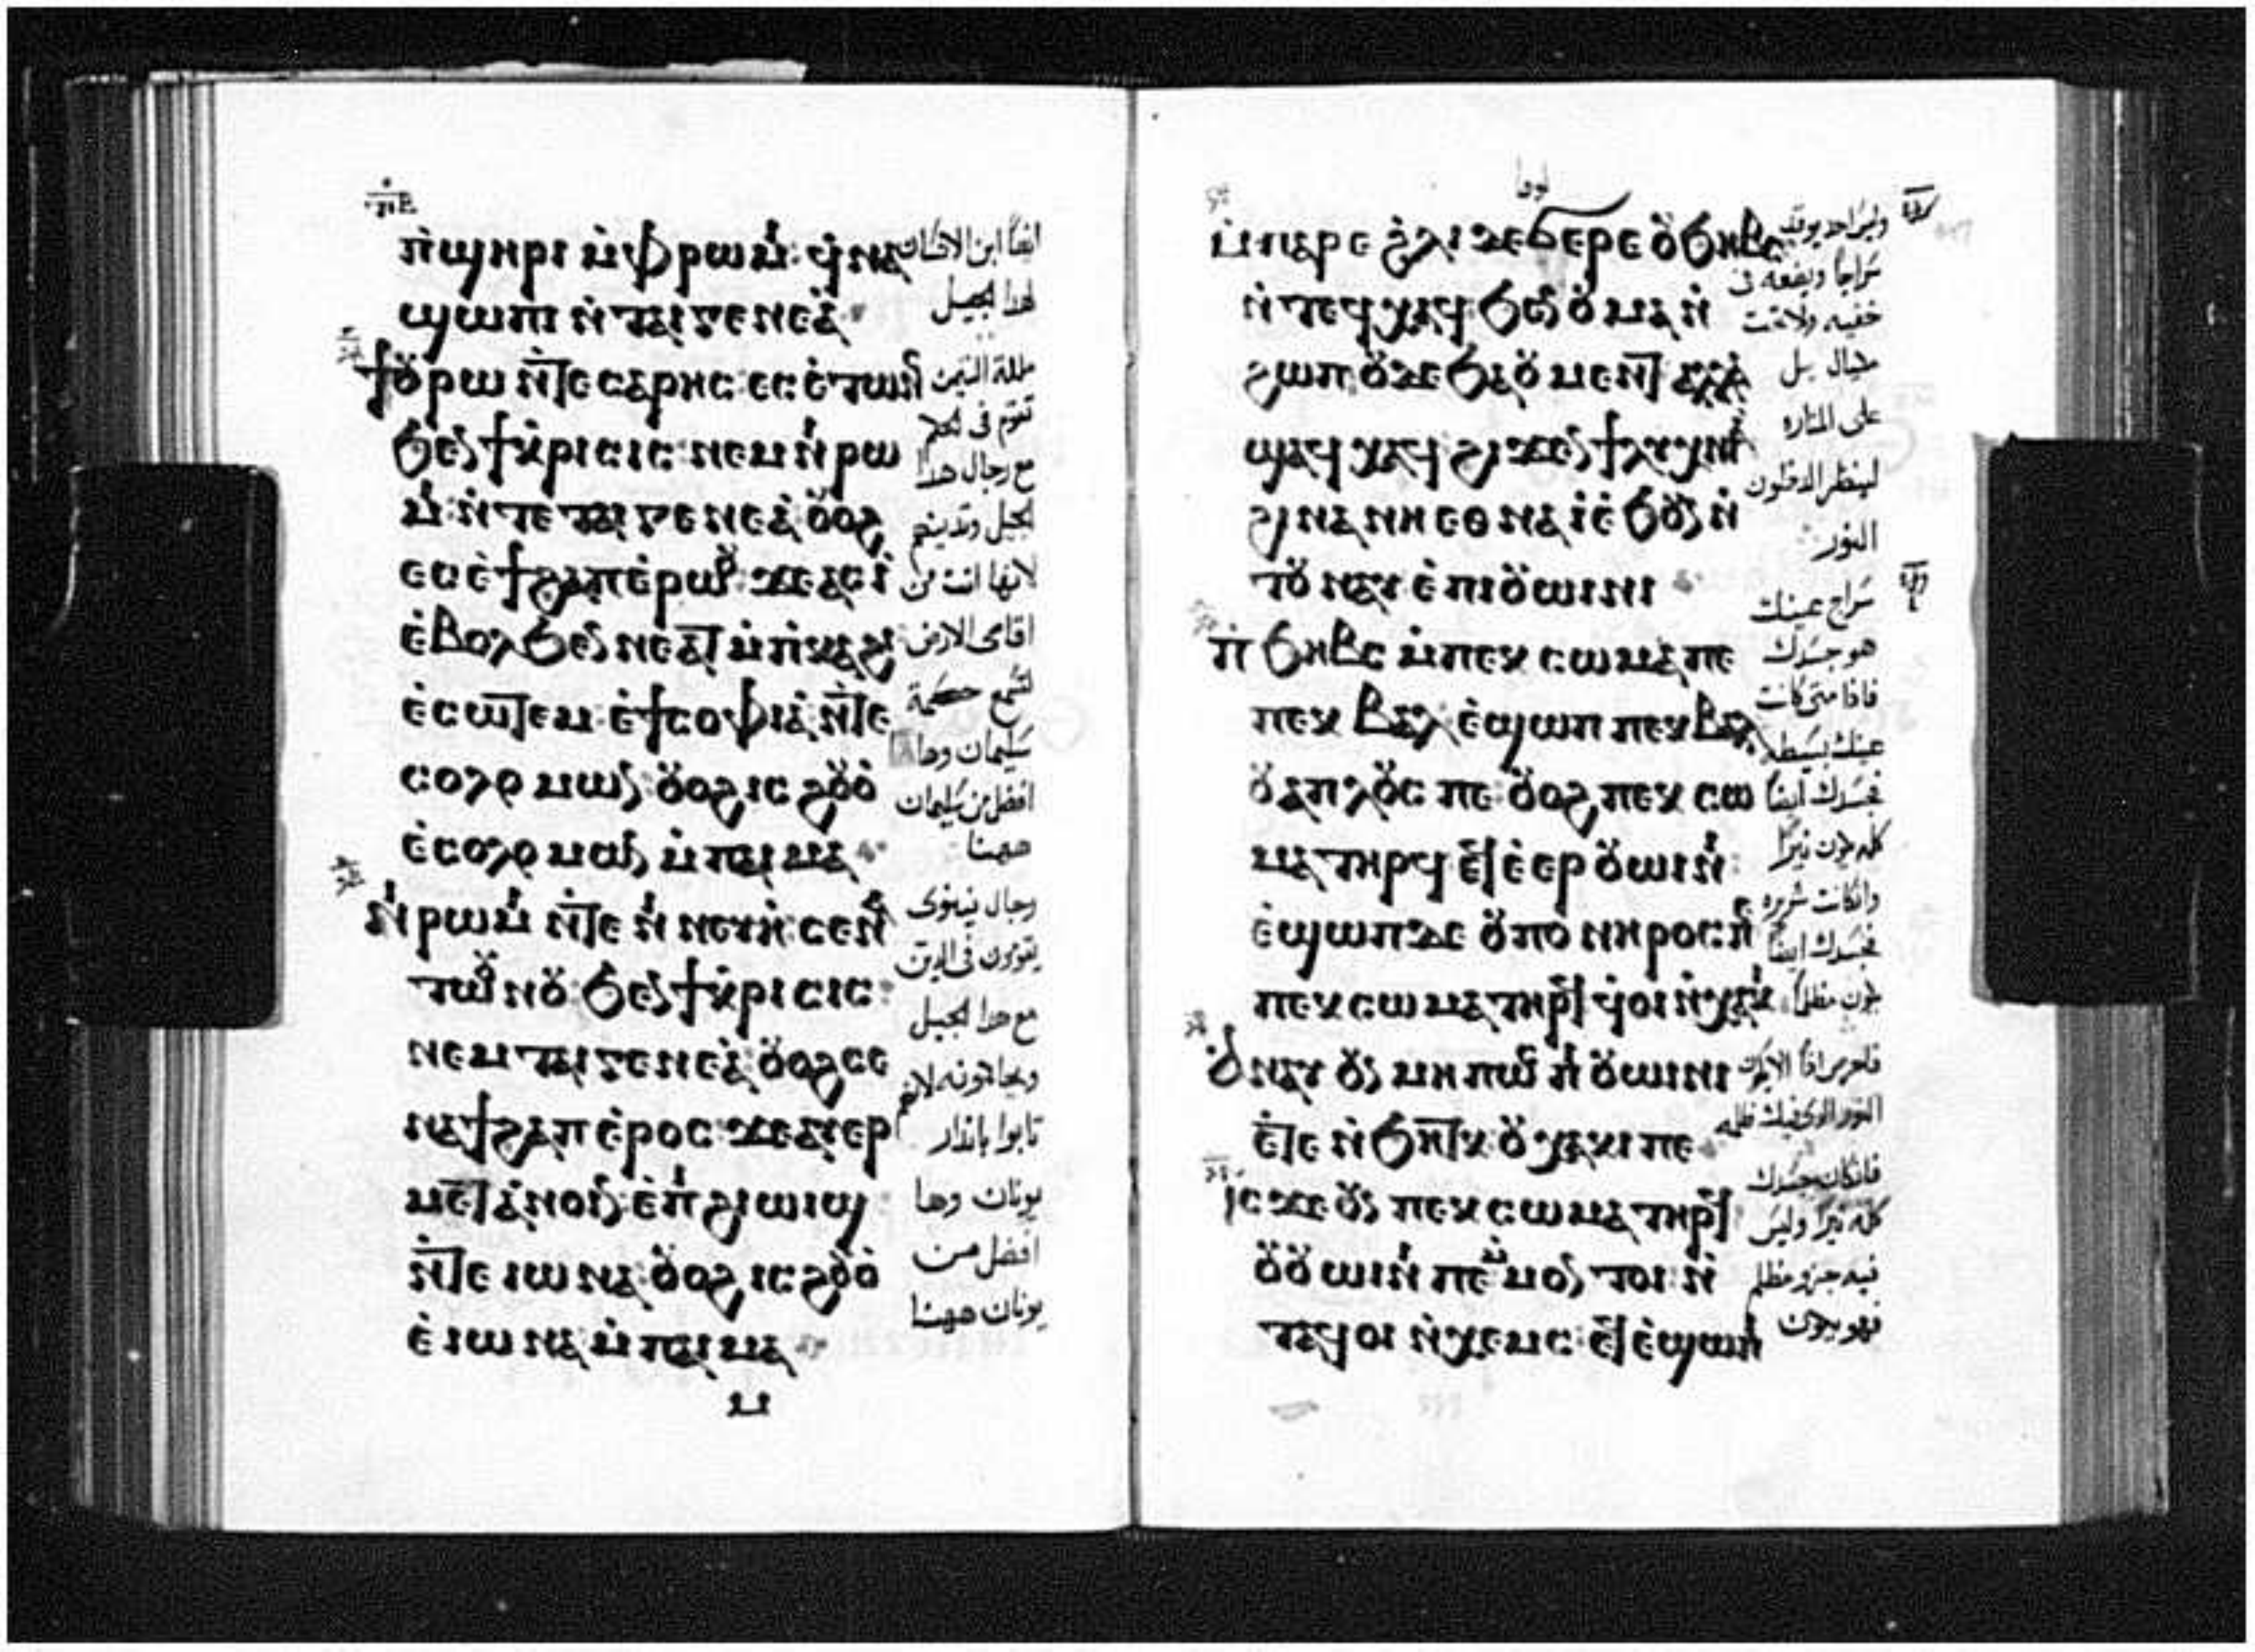 ⲡ̀ϣⲏⲣⲓ ⲙ̀ⲫⲣⲱⲙⲓ: ϥ̀ⲛⲁ
ϣⲱⲡⲓ ⲛ̀ⲧⲁⲓⲅⲉⲛⲉⲁ̀
ϯⲟⲩⲣⲱ ⲛ̀ⲧⲉ ⲥⲁⲣⲏⲥ: ⲉⲥⲉ̀ⲧⲱⲛⲥ
ϧⲉⲛ ϯⲕ̀ⲣⲓⲥⲓⲥ: ⲛⲉⲙ ⲛⲓⲣⲱ
ⲙⲓ: ⲛ̀ⲧⲉ ⲧⲁⲓⲅⲉⲛⲉⲁ̀: ⲟⲩⲟϩ
ⲉⲥⲉ̀ϯϩⲁⲡ ⲉ̀ⲣⲱⲟⲩ: ϫⲉ ⲁⲥⲓ̀
ⲉ̀ⲃⲟⲗ ϧⲉⲛ ⲛⲉⲁⲧ ⲙ̀ⲡ̀ⲕⲁϩⲓ
ⲉ̀ⲥⲱⲧⲉⲙ ⲉ̀ϯⲥⲟⲫⲓⲁ ⲛ̀ⲧⲉ
ⲥⲟⲗⲟⲙⲱⲛ: ⲟⲩⲟϩ ⲓⲥ ϩⲟⲩⲟ̀
ⲉ̀ⲥⲟⲗⲟⲙⲱⲛ ⲙ̀ⲡⲁⲓⲙⲁ
ⲛⲓⲣⲱⲙⲓ ⲛ̀ⲧⲉ ⲛⲓⲛⲉⲩⲏ: ⲥⲉⲛⲁ
ⲧⲱⲟⲩⲛⲟⲩ ϧⲉⲛ ϯⲕ̀ⲣⲓⲥⲓⲥ:
ⲛⲉⲙ ⲧⲁⲓⲅⲉⲛⲉⲁ̀: ⲟⲩⲟϩ ⲥⲉ
ⲛⲁϯϩⲁⲡ ⲉ̀ⲣⲟⲥ: ϫⲉ ⲁⲩⲉⲣ
ⲙⲉⲧⲁⲛⲟⲓⲛ: ⲉ̀ⲡⲓϩⲓⲱⲓϣ
ⲛ̀ⲧⲉ ⲓⲱⲛⲁ: ⲟⲩⲟϩ ⲓⲥ ϩⲟⲩⲟ̀
ⲉ̀ⲓⲱⲛⲁ ⲙ̀ⲡⲁⲓⲙⲁ
ⲙ
ايضا ابن الانسان
لهذا الجيل
ملكة التيمن
تقوم في الحكم
مع رجال هذا
الجيل وتدينهم
لانها اتت من
اقاصى الارض
لتسمع حكمة
سليمان وها
افضل من سليمان
ههنا
رجال نينوى
يقومون في الدين
مع هذا الجيل
لانهم
تابوا بانذار
يونان وها
افضل من
يونان ههنا
لوقا
ⲙ̀ⲡⲁⲣⲉ ϩ̀ⲗⲓ ϫⲉ ϭⲉⲣⲉ ⲟⲩϧⲏⲃⲥ
ⲛ̀ⲧⲉϥⲭⲁϥ ϧⲉⲛ ⲟⲩⲙⲁ ⲛ̀
ϩⲱⲡ: ⲟⲩⲇⲉ ϧⲁ ⲟⲩⲙⲉⲛⲧ ⲁⲗⲗⲁ
ϣⲁϥⲭⲁϥ ϩⲓϫⲉⲛ ϯⲗⲩⲭⲛⲓⲁ
ϩⲓⲛⲁ ⲛⲏⲉⲑⲛⲁⲓ̀ ⲉ̀ϧⲟⲩⲛ ⲛ̀
ⲧⲟⲩⲛⲁⲩ ⲉ̀ⲡⲓⲟⲩⲱⲓⲛⲓ
ⲡ̀ϧⲏⲃⲥ ⲙ̀ⲡⲉⲕⲥⲱⲙⲁ ⲡⲉ
ⲡⲉⲕⲃⲁⲗ: ⲉ̀ϣⲱⲡ ⲡⲉⲕⲃⲁⲗ
ⲟⲩⲁⲡⲗⲟⲩⲥ ⲡⲉ: ⲟⲩⲟϩ ⲡⲉⲕⲥⲱ
ⲙⲁ ⲧⲏⲣϥ ⲉϥⲉ̀ⲉⲣⲟⲩⲱⲓⲛⲓ:
ⲉ̀ϣⲱⲡ ⲇⲉ ⲟⲩⲡⲟⲛⲏⲣⲟⲥ ⲡⲉ
ⲡⲉⲕⲥⲱⲙⲁ ⲧⲏⲣϥ ϥ̀ⲟⲓ ⲛ̀ⲭⲁⲕⲓ
ⲁⲛⲁⲩ ⲟⲩⲛ ⲙⲏⲡⲱⲥ ⲡⲓⲟⲩⲱⲓⲛⲓ
ⲉ̀ⲧⲉ ⲛ̀ϧⲏⲧⲕ ⲟⲩⲭⲁⲕⲓ ⲡⲉ
ⲓⲥϫⲉ ⲟⲩⲛ ⲡⲉⲕⲥⲱⲙⲁ ⲧⲏⲣϥ
ⲟⲩⲟⲩⲱⲓⲛⲓ ⲡⲉ ⲙ̀ⲙⲟⲛ ⲧⲟⲓ ⲛ̀
ⲧⲁϥ ⲟⲓ ⲛ̀ⲭⲉⲙⲥ: ⲉϥⲉ̀ϣⲱⲡⲓ
وليس احد يوقد
سراجا ويضعه في
خفيه ولا تحت
مكيال بل
على المناره
لينظر الداخلون
النور
سراج عينك
هو جسدك
فاذا متى كانت
عينك بسيطه
فجسدك ايضا
كله يكون نيرا
وان كانت شريره
فجسدك ايضا
يكون مظلما
النور الذى فيك ظلمه
فان كان جسدك
كله نيرا وليس
فيه جزو مظلم
فهو يكون